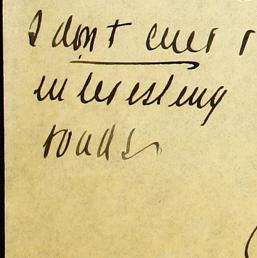 I don't ever r
interesting
roads